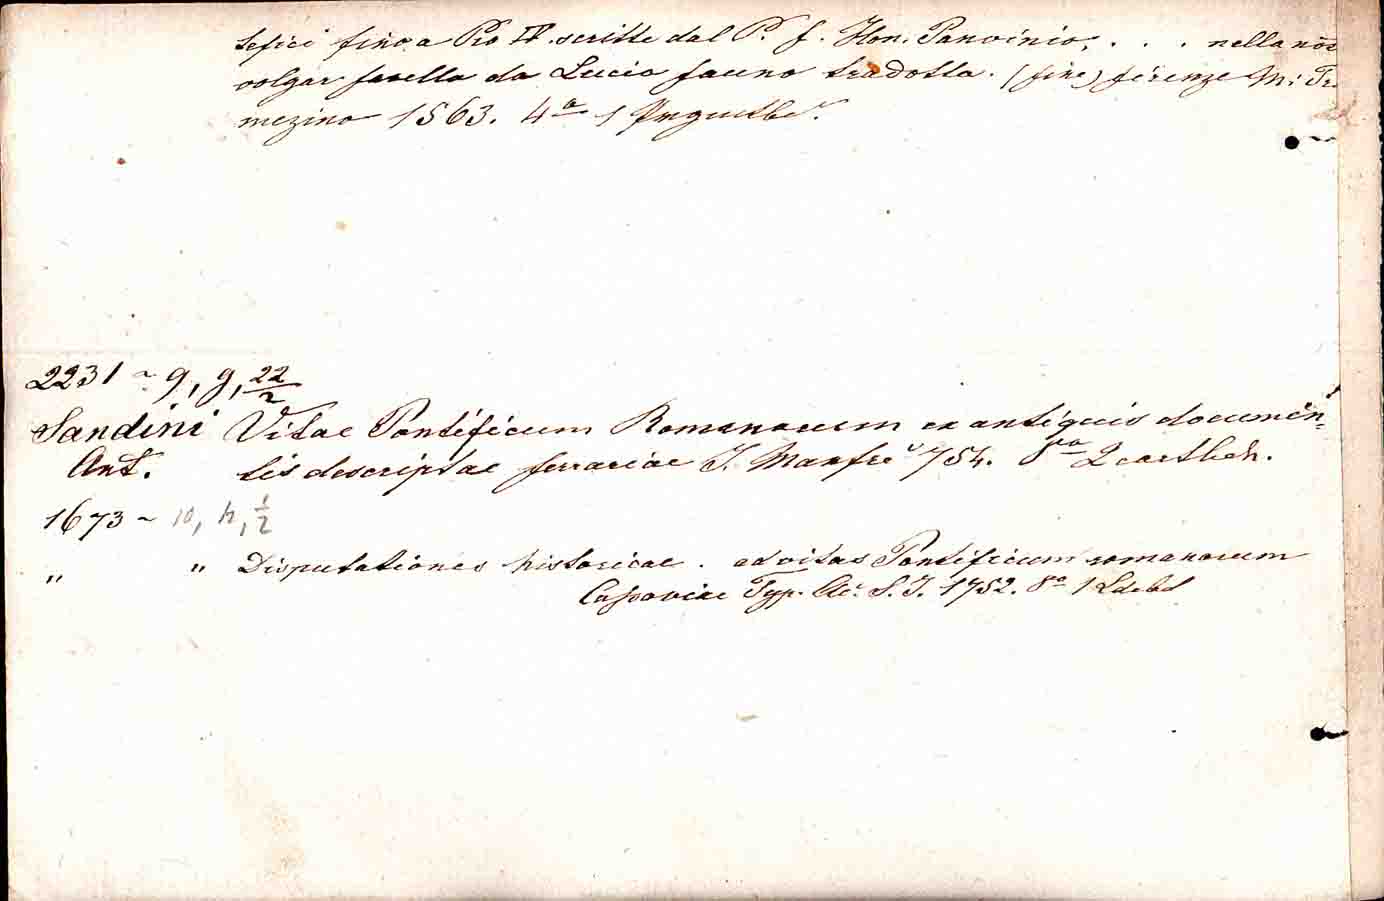 tefici fino a Pio IV. scritte dal P. f. Hon. Panvinio, . . . nella nos
volgar favella da Lucio fauno tradotta. (fine) firenze M: Tra
mezino 1563. 4º 1
2231 ~ 9, g, 22/2
Sandini Vitae Pontificum Romanorum ex antiquis documen=
Ant. tis descriptae ferrariae J. Manfrè 754. 8vo 2
1673 ~ 10, h, 1/2
" " Disputationes historicae . ad vitas Pontificum romanorum
Typ. Ac. S. J. 1752. 8º 1